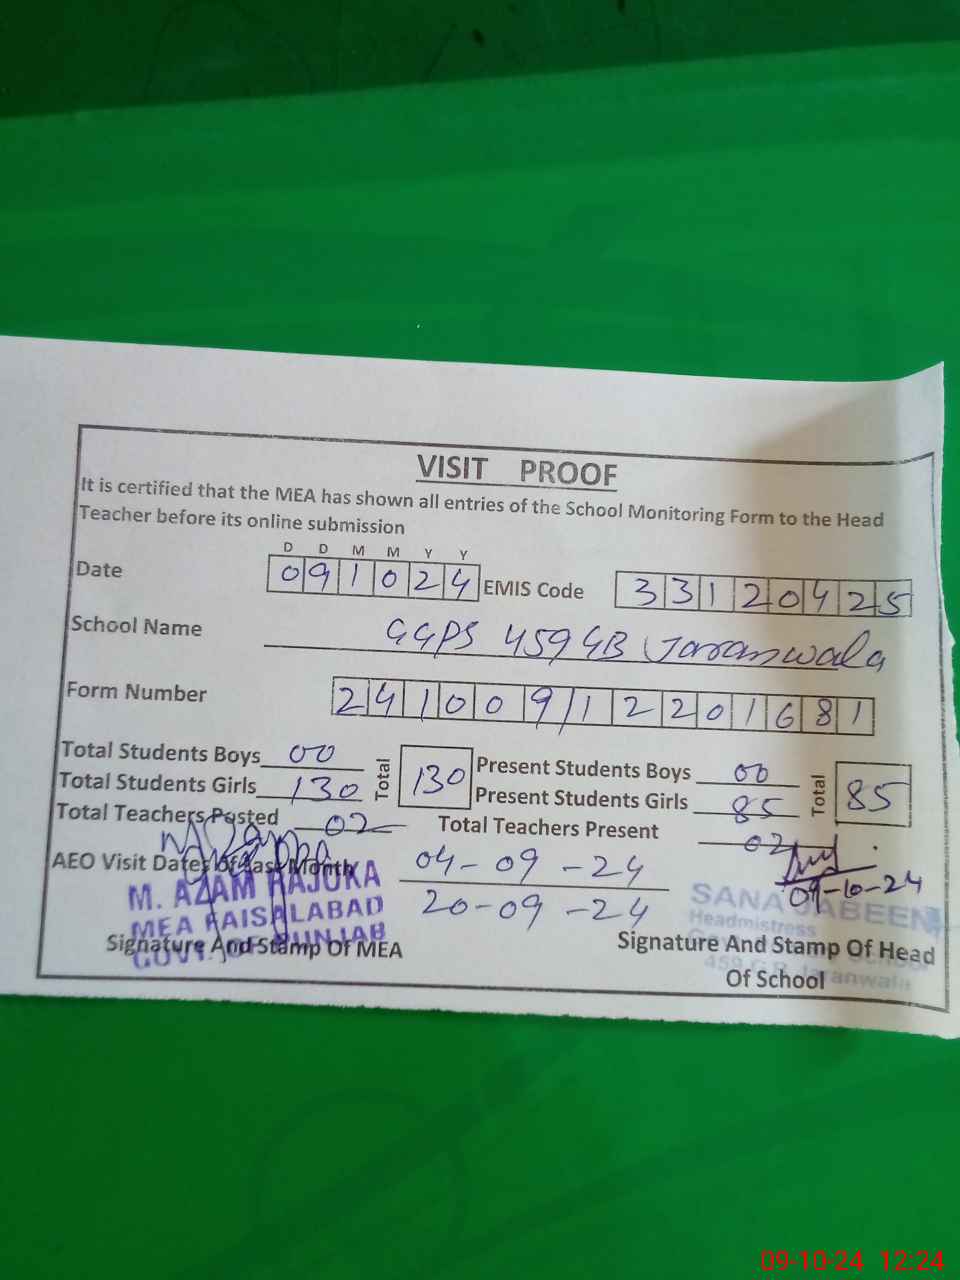 VISIT PROOF
It is certified that the MEA has shown all entries of the School Monitoring Form to the Head
Teacher before its online submission
D D M M Y Y
Date 091024 EMIS Code 33120425
School Name GGPS 459 GB Jaranwala
Form Number 241009122201681
Total Students Boys 00 Total 130 Present Students Boys 00 Total 85
Total Students Girls 130 Present Students Girls 85
Total Teachers Posted 02 Total Teachers Present 02
AEO Visit Dates of last Month 04-09-24
20-09-24
09-10-24
M. AZAM RAJOKA
MEA FAISALABAD
GOVT. OF PUNJAB
Signature And Stamp Of MEA
SANA JABEEN
Headmistress
School
459 G.B. Jaranwala
Signature And Stamp Of Head
Of School
09-10-24 12:24